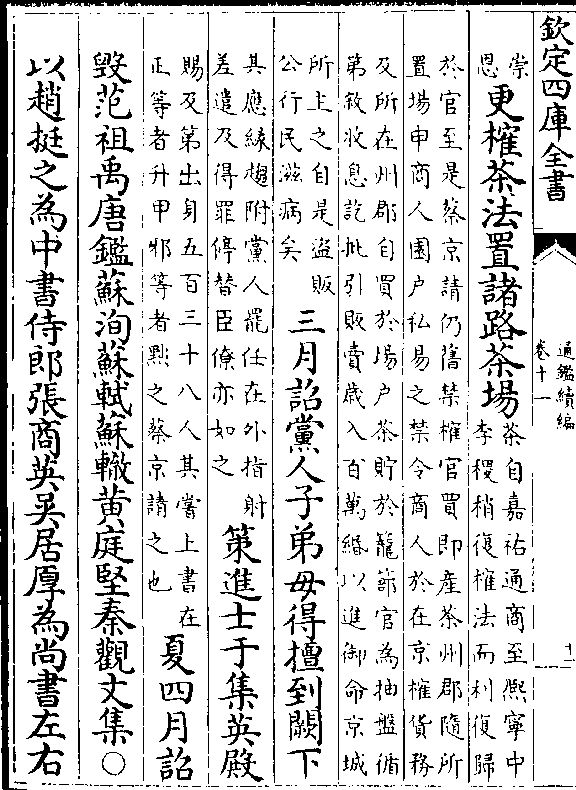 欽定四庫全書
通鑑續編
卷十一
崇
恩
更榷茶法置諸路茶場
茶自嘉祐通商至熙寧中
李稷稍復榷法而利復歸
於官至是蔡京請仍舊禁榷官買即產茶州郡隨所
置場申商人園户私易之禁令商人於在京榷貨務
及所在州郡自買於場户茶貯於籠篰官為抽盤循
第敘收息訖批引販賣歲入百萬緡以進御命京城
所主之自是盜販
公行民滋病矣
三月詔黨人子弟毋得擅到闕下
其應緣趨附黨人罷任在外指射
差遣及得罪停替臣僚亦如之
策進士于集英殿
賜及第出身五百三十八人其嘗上書在
正等者升甲邪等者黜之蔡京請之也
夏四月詔
毀范祖禹唐鑑蘇洵蘇軾蘇轍黄庭堅秦觀文集○
以趙挺之為中書侍郎張商英吴居厚為尚書左右